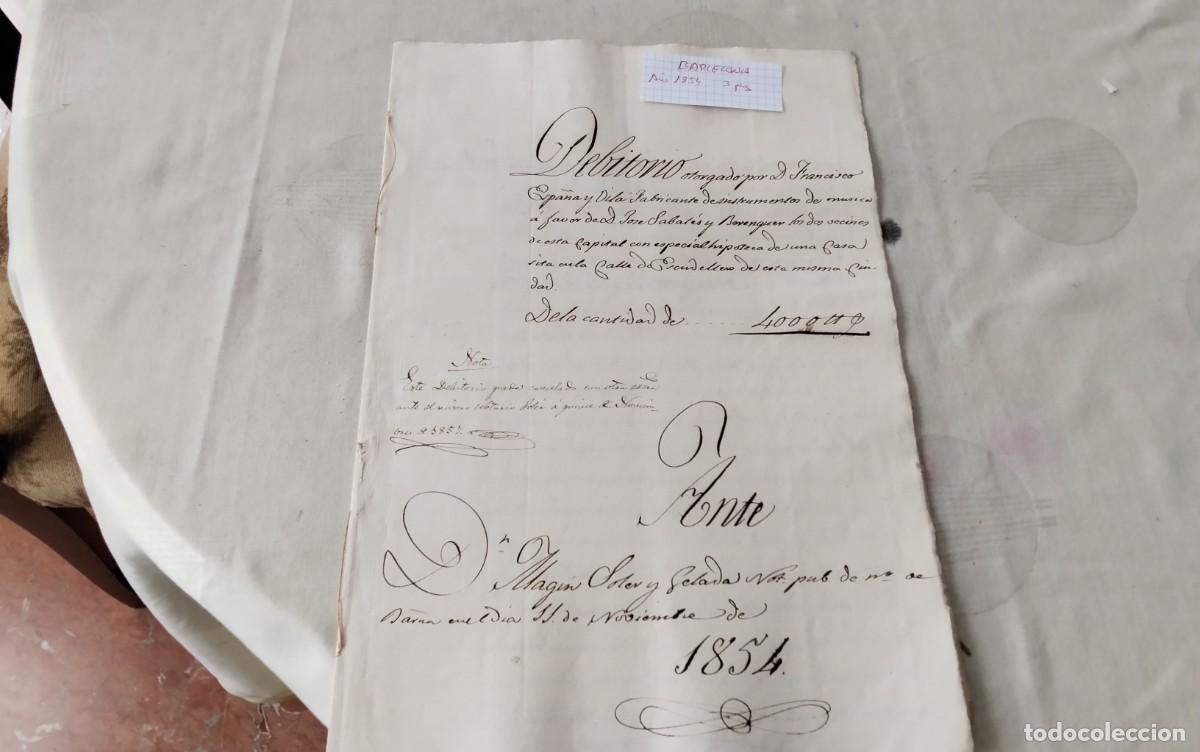 BARCELONA
Año 1854 3 pg
Debitorio otorgado por D Francisco
España y Vilá Fabricante de instrumentos de musica
á favor de D. Jose Sabatés y Berenguer los dos vecinos
de esta Capital con especial hipoteca de una Casa
sita en la Calle de Escudellers de esta misma Ciu-
dad.
De la cantidad de 400
Nota
Este Debitorio queda cancelado con otra
ante el mismo Notario Soler á quince de Noviem-
bre de 1857.
Ante
Dn. Magin Soler y Gelada Not. pub. de no. de
Barna en el dia 11. de Noviembre de
1854.
todocoleccion